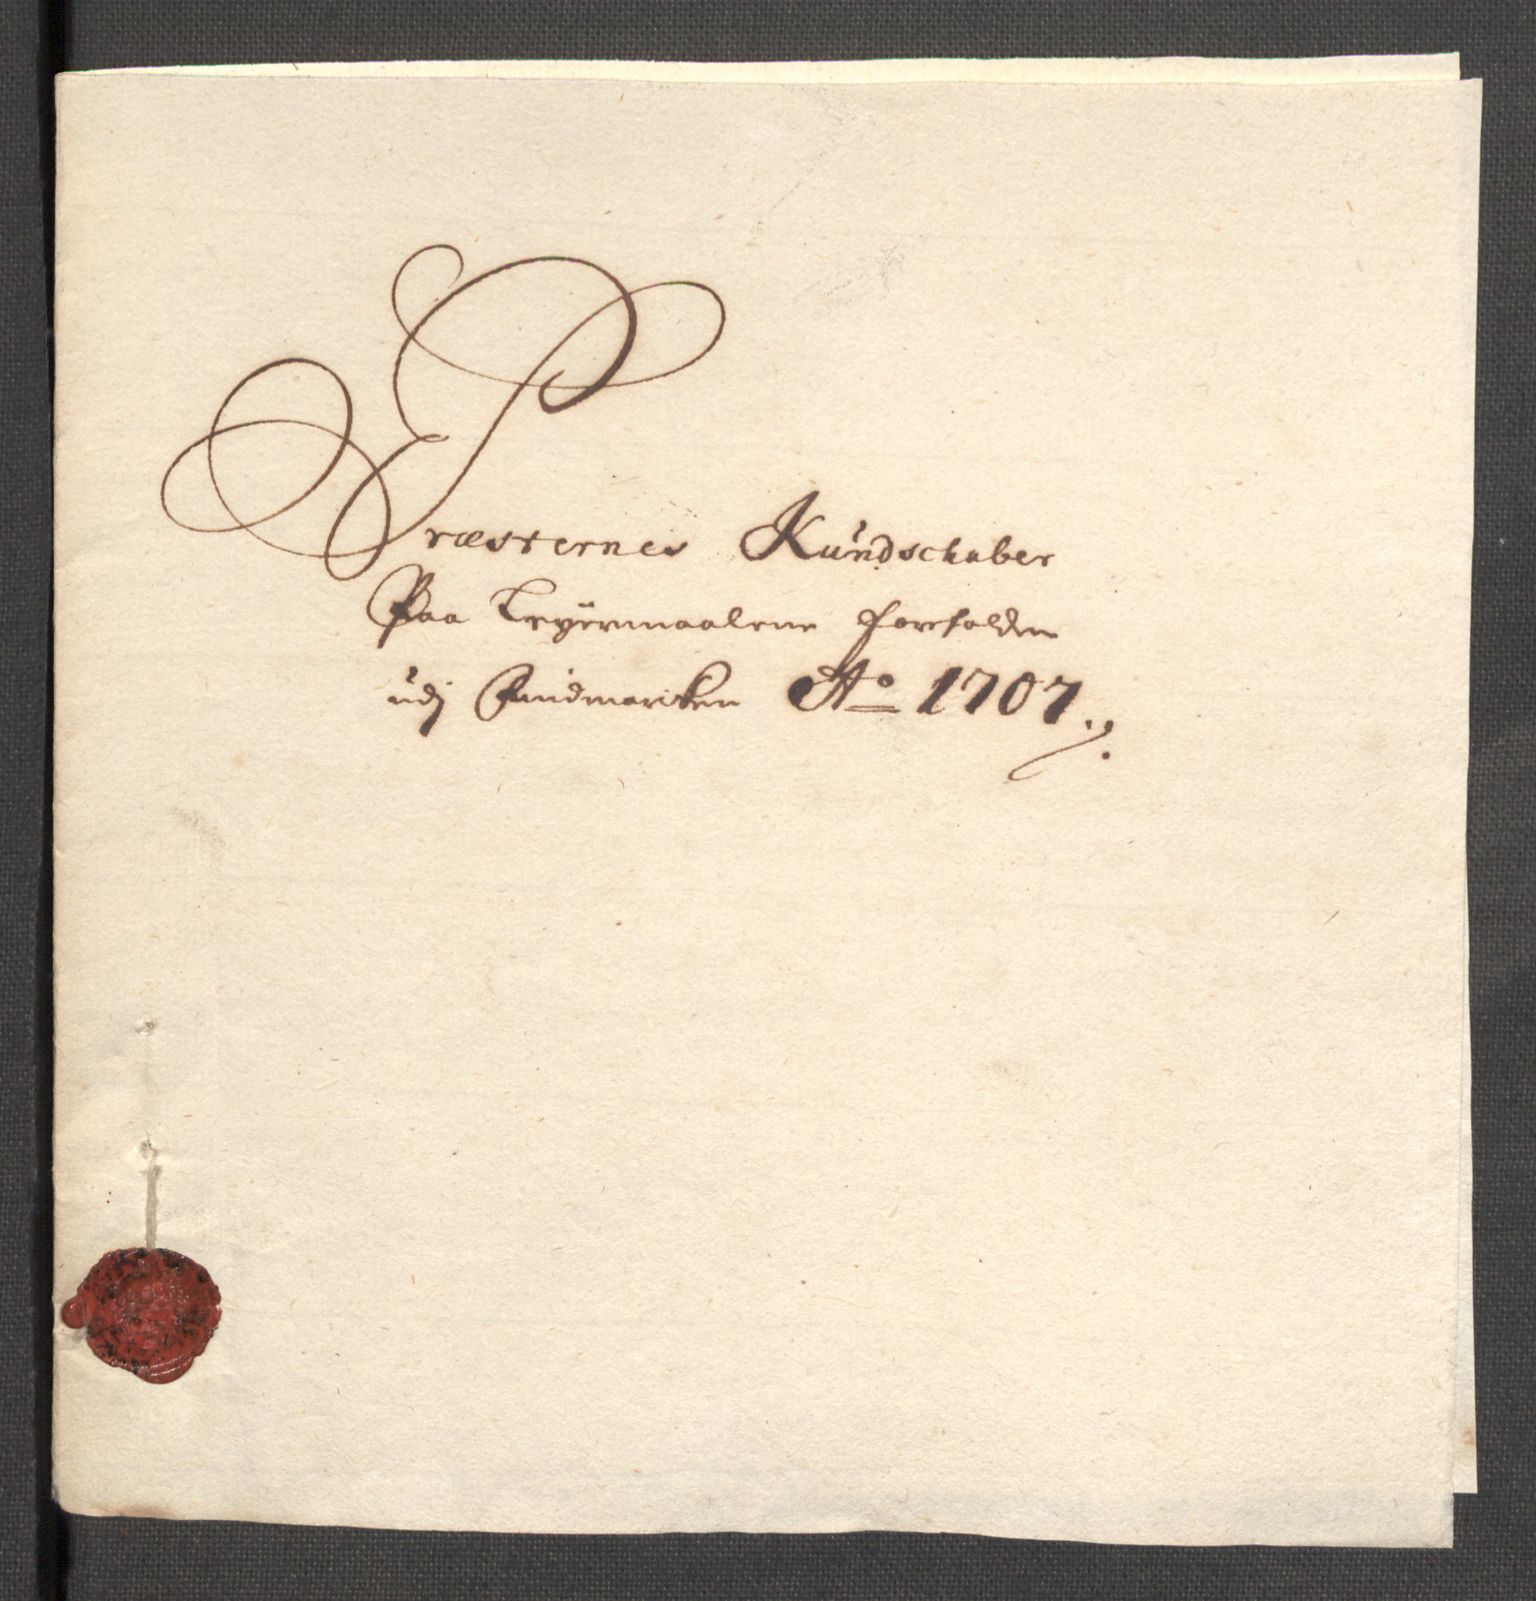 Præsternes Kundschaber
Paa Leyermaalene forefalden
udj Findmarcken Ao 1707